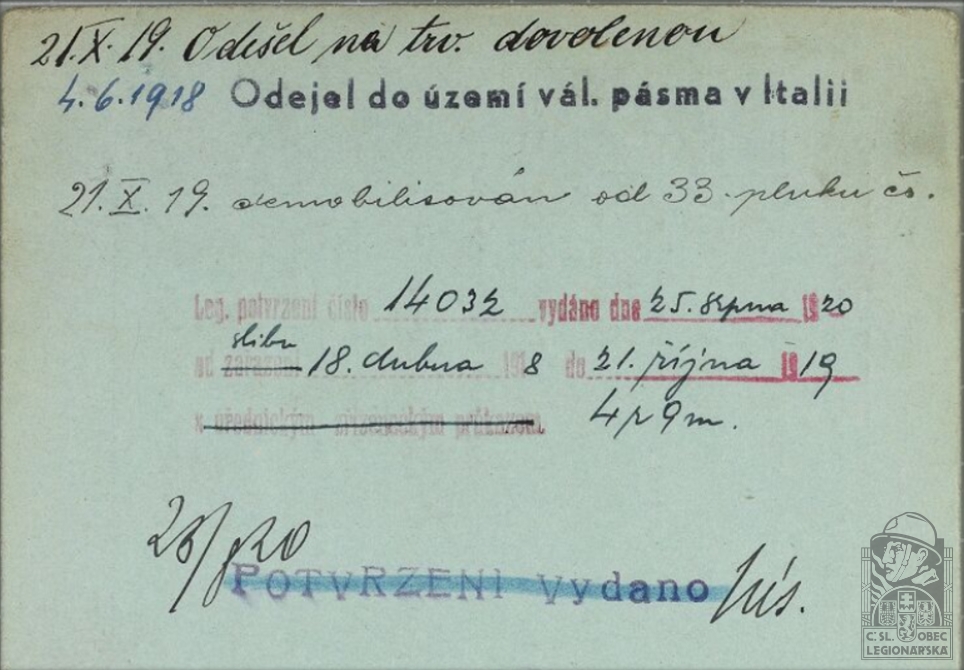 21.X.19. Odešel na trv. dovolenou
4.6.1918 Odejel do území vál. pásma v Italii
21.X.19. demobilisován od 33. pluku čs.
Leg. potvrzení číslo 14032 vydáno dne 25. srpna 1920
slibu
od zařazení 18. dubna 1918 do 21. října 1919
k úřednickým zřízeneckým průkazem. 4 r 9 m.
POTVRZENÍ vydano
Č.SL. OBEC
LEGIONÁŘSKÁ